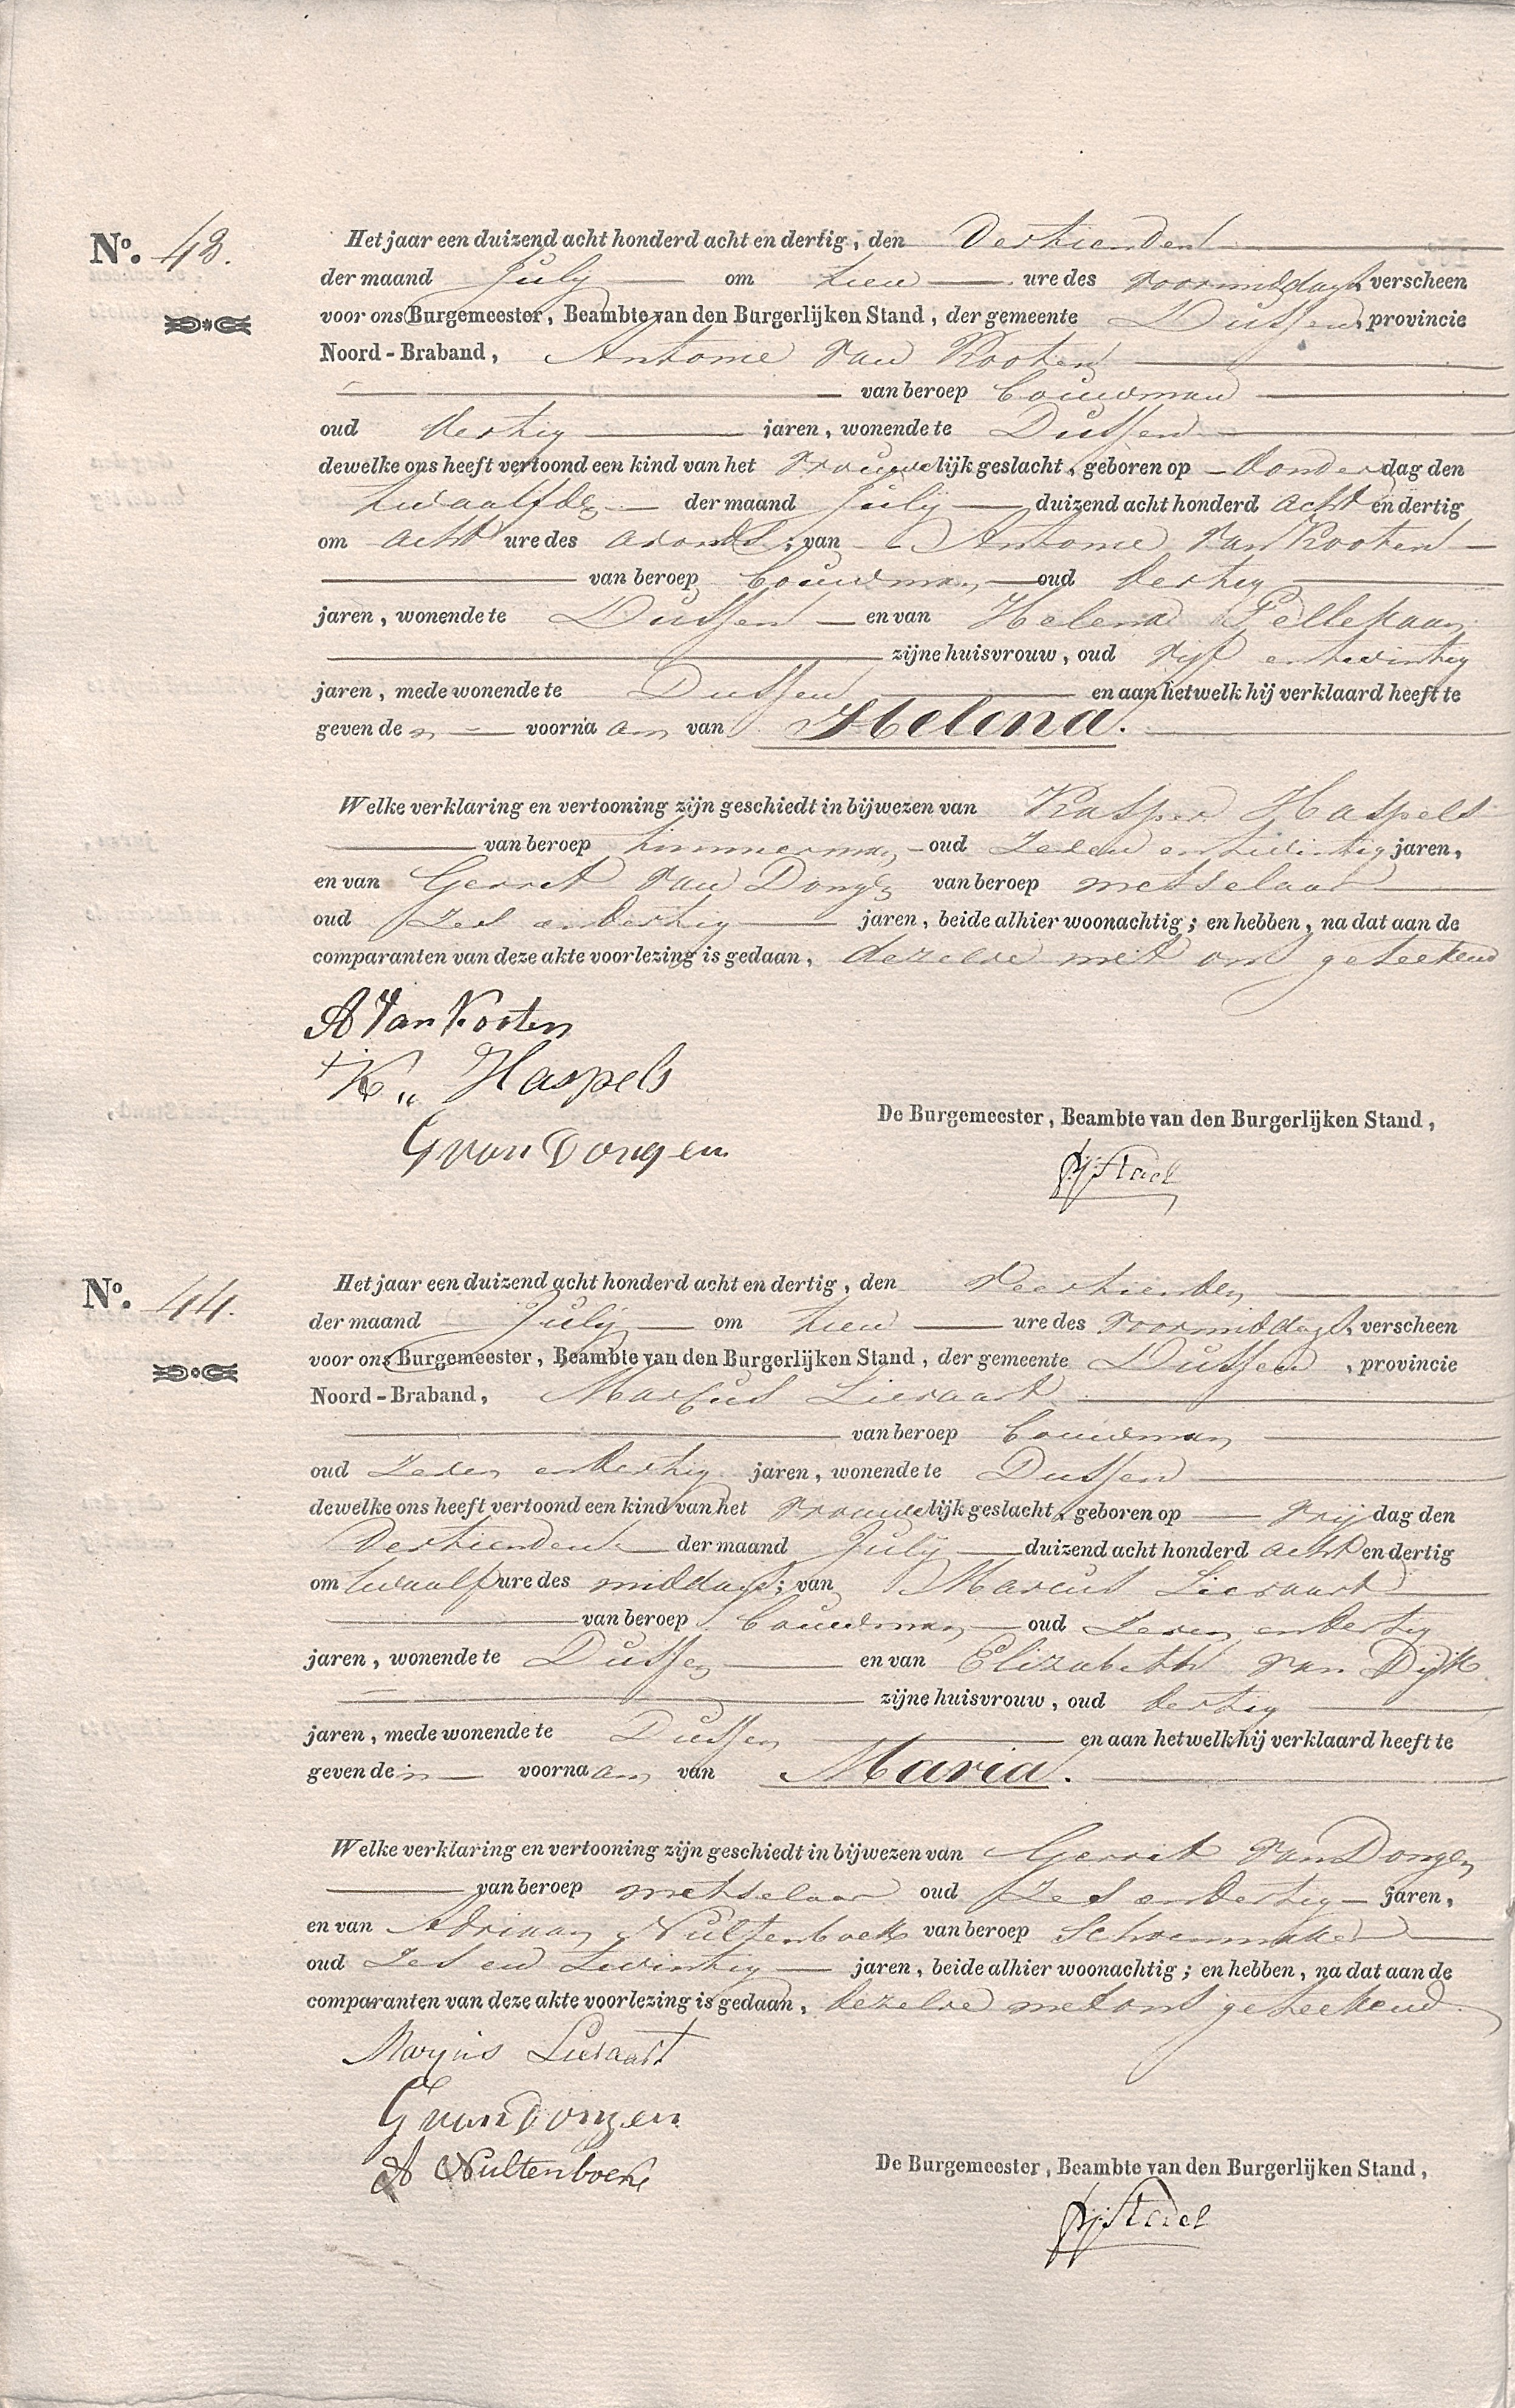 No. 43.
Het jaar een duizend acht honderd acht en dertig, den Dertienden
der maand July om tien ure des voormiddags, verscheen
voor ons Burgemeester, Beambte van den Burgerlijken Stand, der gemeente Dussen, provincie
Noord-Braband, Antonie van Kooten
van beroep bouwman
oud dertig jaren, wonende te Dussen
dewelke ons heeft vertoond een kind van het vrouwelijk geslacht, geboren op donderdag den
twaalfden der maand July duizend acht honderd acht en dertig
om acht ure des avonds; van Antonie van Kooten
van beroep bouwman oud dertig
jaren, wonende te Dussen en van Helena Pellekaan
zijne huisvrouw, oud vijf en twintig
jaren, mede wonende te Dussen en aan hetwelk hij verklaard heeft te
geven den voornaam van Helena.
Welke verklaring en vertooning zijn geschiedt in bijwezen van Kasper Haspels
van beroep timmerman oud zeven en twintig jaren,
en van Gerrit van Dongen van beroep metselaar
oud zes en dertig jaren, beide alhier woonachtig; en hebben, na dat aan de
comparanten van deze akte voorlezing is gedaan, dezelve met ons geteekend
A Van Kooten
K,, Haspels
G van Dongen
De Burgemeester, Beambte van den Burgerlijken Stand,
No. 44.
Het jaar een duizend acht honderd acht en dertig, den Veertienden
der maand July om tien ure des voormiddags, verscheen
voor ons Burgemeester, Beambte van den Burgerlijken Stand, der gemeente Dussen, provincie
Noord-Braband, Marcus Lievaart
van beroep bouwman
oud zeven en dertig jaren, wonende te Dussen
dewelke ons heeft vertoond een kind van het vrouwelijk geslacht, geboren op vrijdag den
Dertienden der maand July duizend acht honderd acht en dertig
om twaalf ure des middags; van Marcus Lievaart
van beroep bouwman oud zeven en dertig
jaren, wonende te Dussen en van Elizabeth van Dijk
zijne huisvrouw, oud dertig
jaren, mede wonende te Dussen en aan hetwelk hij verklaard heeft te
geven den voornaam van Maria.
Welke verklaring en vertooning zijn geschiedt in bijwezen van Gerrit van Dongen
van beroep metselaar oud zes en dertig jaren,
en van Adriaan Nultenboek van beroep Schoenmaker
oud zes en twintig jaren, beide alhier woonachtig; en hebben, na dat aan de
comparanten van deze akte voorlezing is gedaan, dezelve met ons geteekend.
Lievaart
G van Dongen
A Nultenboek
De Burgemeester, Beambte van den Burgerlijken Stand,